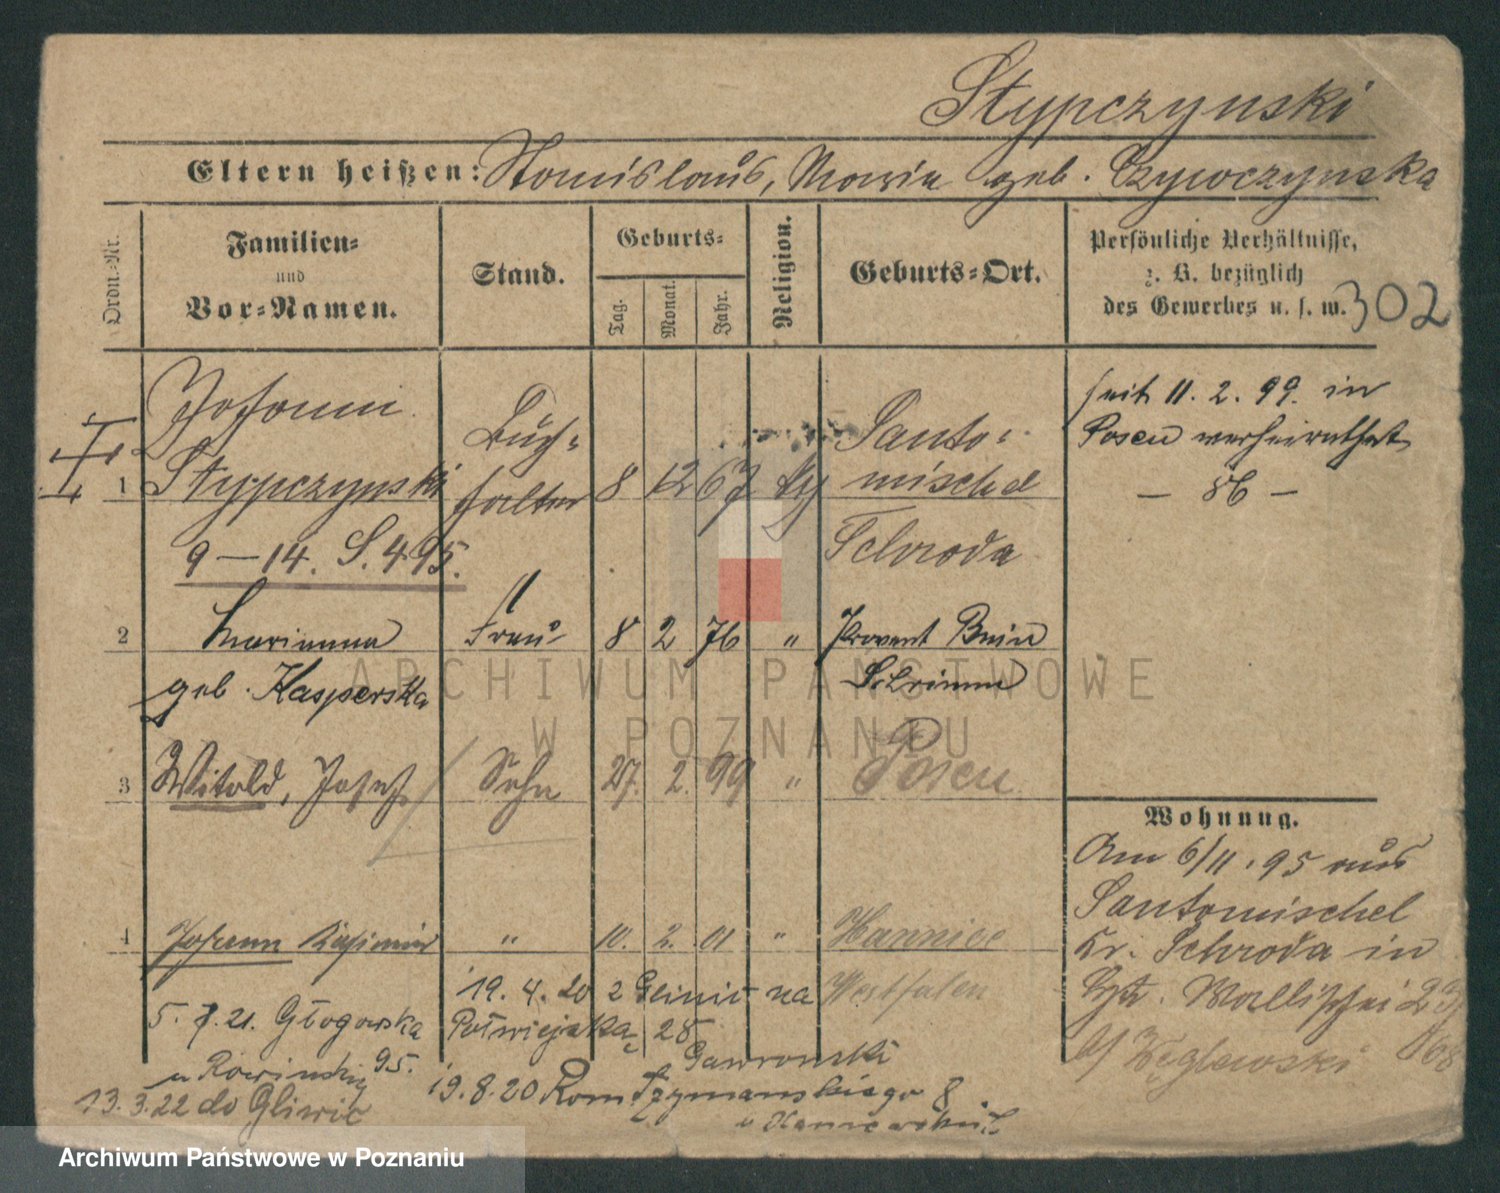 Stypczynski
Eltern heißen: Stanislaus, Maria geb. Czywczynska
Ordn.-Nr.
Familien-
und
Vor-Namen.
Stand.
Geburts-
Tag.
Monat.
Jahr.
Religion.
Geburts-Ort.
Persönliche Verhältnisse,
z. B. bezüglich
des Gewerbes u. s. w.
302
1
Johann
Stypczynski
9 – 14. S. 4. 95.
Buch-
halter
8 12 67
Santo-
mischel
Schroda
seit 11. 2. 99. in
Posen verheirathet
2 Marianna
geb. Kasperska
Frau 8 2 76 "
Provent Bnin
Schrimm
3 Witold, Josef
Sohn 27. 2. 99 " Posen
4 Johann Kasimir " 10. 2. 01 "
Westfalen
Wohnung.
Am 6/11. 95 aus
Santomischel
Kr. Schroda in
Wallischei
b/ Węglewski
19. 4. 20 z Gliwic na
Półwiejska 25
Gawronski
5. 7. 21. Głogowska 95.
u
13. 3. 22 do Gliwic
19. 8. 20 Rom Szymanskiego 8
u
ARCHIWUM PAŃSTWOWE
W POZNANIU
Archiwum Państwowe w Poznaniu